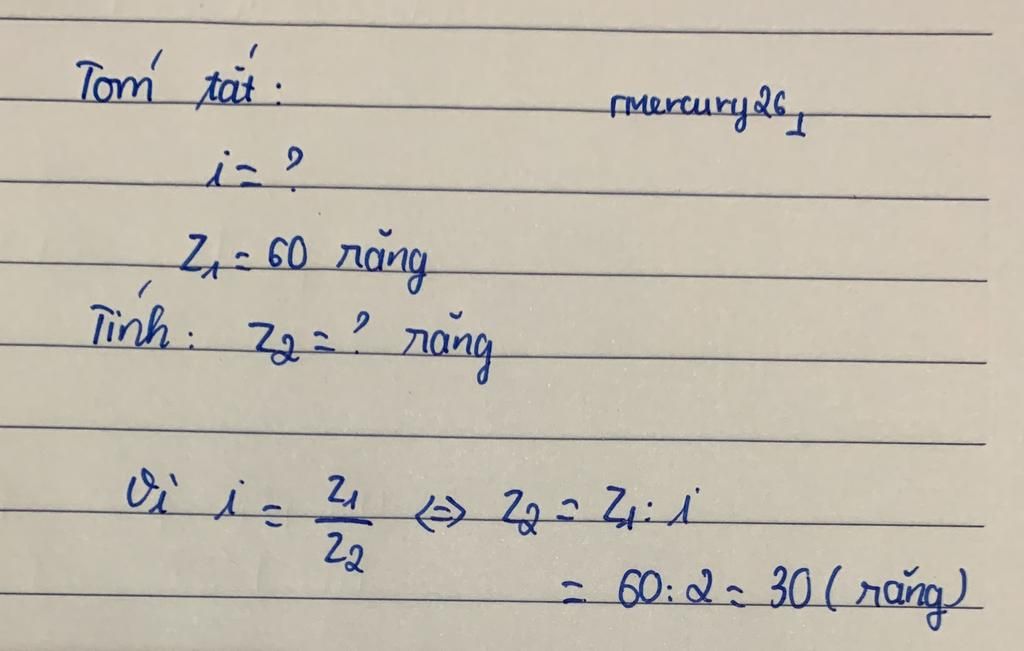 Tóm tắt :
rmercury26_1
i = ?
Z₁ = 60 răng
Tính : Z₂ = ? răng
Vì i = Z₁/Z₂ ⇔ Z₂ = Z₁ : i
= 60 : 2 = 30 ( răng)